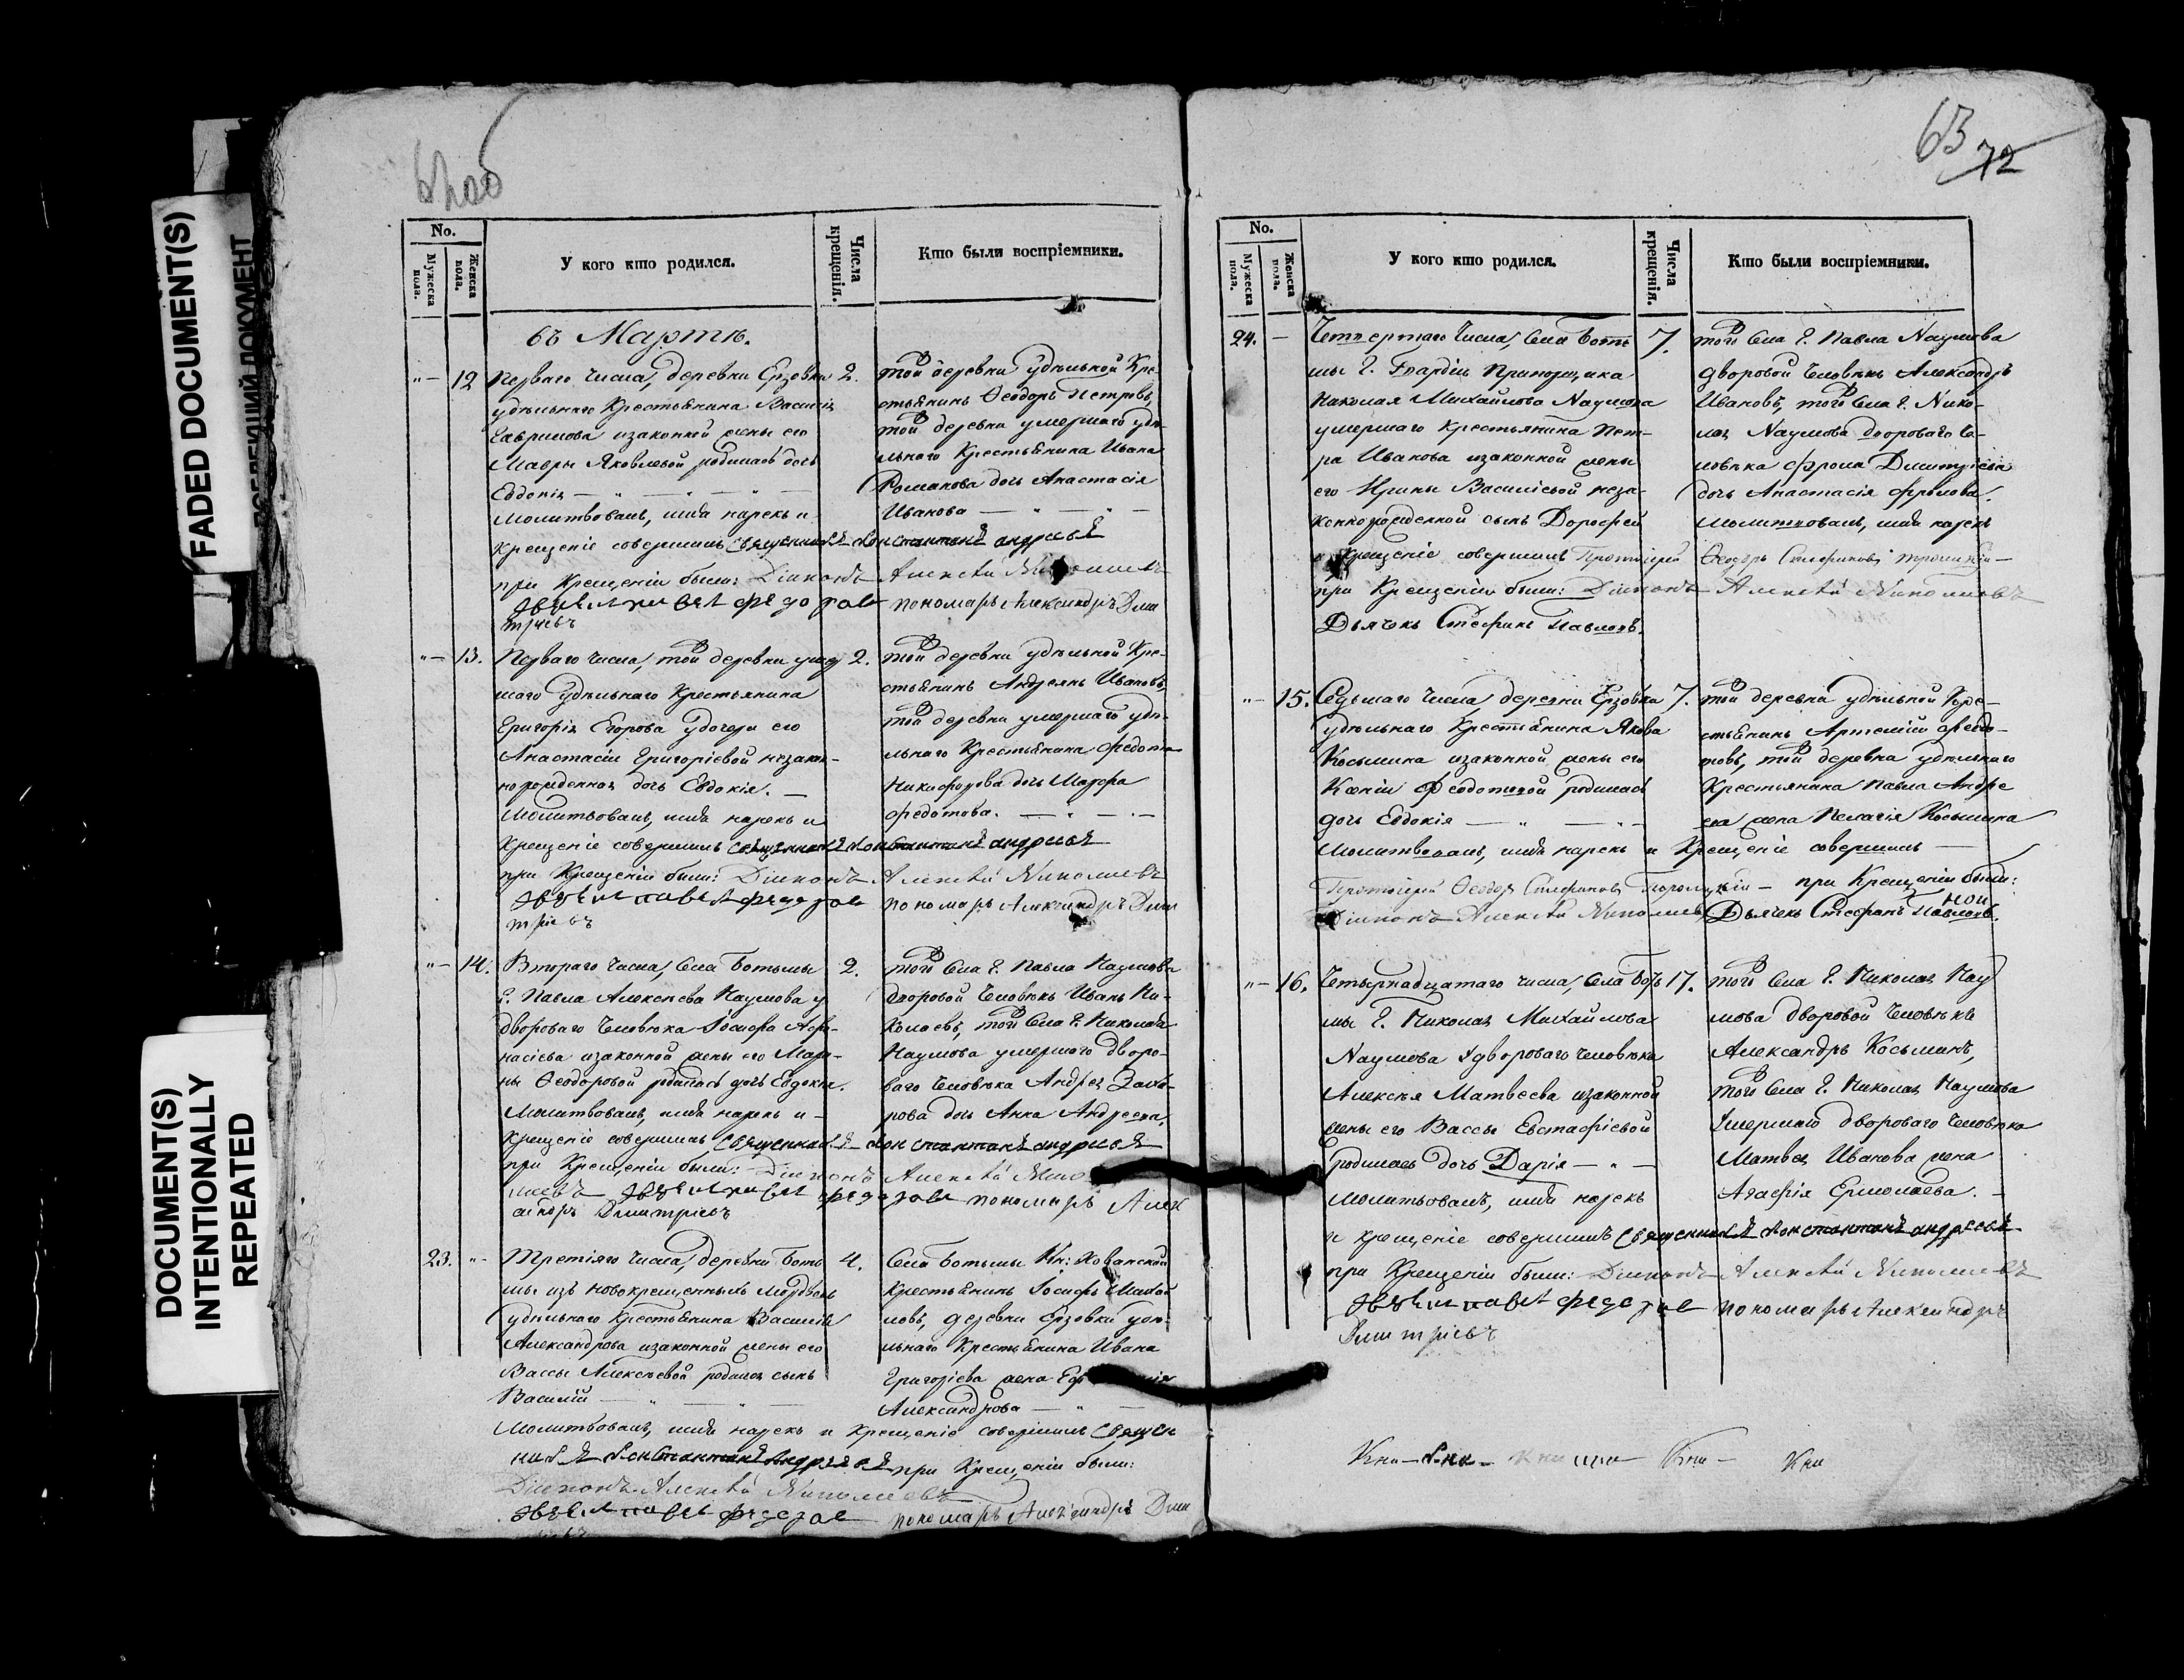 62об
No.
Мужеска пола.
Женска пола.
У кого кто родился.
Числа крещенія.
Кто были воспріемники.
въ Мартѣ.
"— 12 Перваго числа, деревни Ерзовки 2.
удѣльнаго Крестьянина Василія
Гаврилова изаконной жены его
Мавры Яковлевой родилась дочь
Евдокія — " — " —
Молитвовалъ, имя нарекъ и
крещеніе совершилъ священникъ Константинъ андреевъ
при Крещеніи были: Діаконъ Алексѣй Николаевъ
пономарь Александръ Дми
тріевъ
той деревни удѣльной Кре-
стьянинъ Ѳеодоръ Петровъ,
той деревни умершаго удѣ-
льнаго Крестьянина Ивана
Романова дочь Анастасія
Иванова — " — " —
"— 13. Перваго числа, той деревни умер 2.
шаго удѣльнаго Крестьянина
Григорія Егорова удочери его
Анастасіи Григоріевой незакон-
норожденная дочь Евдокія. —
Молитвовалъ, имя нарекъ и
Крещеніе совершилъ священникъ Константинъ андреевъ
при Крещеніи были: Діаконъ Алексѣй Николаевъ
пономарь Александръ Дми
тріевъ
той деревни удѣльной Кре-
стьянинъ Андреянъ Ивановъ,
той деревни умершаго удѣ-
льнаго Крестьянина Федота
Никифорова дочь Марфа
Федотова. — " — " —
"— 14. Втораго числа, села Ботьмы 2.
Г. Павла Алексѣева Наумова у
двороваго человѣка Іосифа Афа-
насіева изаконной жены его Мар-
ны Ѳеодоровой родилась дочь Евдокія.
Молитвовалъ, имя нарекъ и —
Крещеніе совершилъ священникъ Константинъ андреевъ
при Крещеніи были: Діаконъ Алексѣй Нико
лаевъ пономарь Алек
сандръ Дмитріевъ
того села Г. Павла Наумова
дворовой человѣкъ Иванъ Ни-
колаевъ, того села Г. Николая
Наумова умершаго дворо-
ваго человѣка Андрея Заха-
рова дочь Анна Андреева.
23. "— Третіяго числа, деревни Боть 4.
мы изъ новокрещенныхъ Мордвовъ
удѣльнаго Крестьянина Василія
Александрова изаконной жены его
Вассы Алексѣевой родился сынъ
Василій — " — " —
Молитвовалъ, имя нарекъ и крещеніе совершилъ священ
никъ Константинъ Андреевъ при Крещеніи были:
Діаконъ Алексѣй Николаевъ
пономарь Александръ Дми
села Ботьмы Кн: Хованской
Крестьянинъ Іосифъ Михай
ловъ, деревни Ерзовки удѣ-
льнаго Крестьянина Ивана
Григоріева жена
Александрова — " —
63
72
No.
Мужеска пола.
Женска пола.
У кого кто родился.
Числа крещенія.
Кто были воспріемники.
24. — Четвертаго числа, села Боть 7.
мы Г. Гвардіи Прапорщика
Николая Михайлова Наумова
умершаго крестьянина Пет-
ра Иванова изаконной жены
его Ирины Василіевой неза-
коннорожденной сынъ Дорофей
и Крещеніе совершилъ Протоіерей Ѳеодоръ Стефановъ
при Крещеніи были: Діаконъ Алексѣй Николаевъ
Дьячекъ Стефанъ Павловъ.
того села Г. Павла Наумова
дворовой человѣкъ Александръ
Ивановъ, того села Г. Нико-
лая Наумова двороваго че-
ловѣка Фрола Дмитріева
дочь Анастасія Фролова.
Молитвовалъ, имя нарекъ
"— 15. Седьмаго числа, деревни Ерзовки 7.
удѣльнаго Крестьянина Якова
Косьмина изаконной жены его
Ксеніи Федотовой родилась
дочь Евдокія — " — " —
Молитвовалъ, имя нарекъ и Крещеніе совершилъ —
Протоіерей Ѳеодоръ Стефановъ — при Крещеніи были:
Діаконъ Алексѣй Николаевъ Дьячекъ Стефанъ Павловъ.
той деревни удѣльной Кре-
стьянинъ Артемій Федо-
товъ, той деревни удѣльнаго
Крестьянина Павла Андре
ева жена Пелагія Косьмина
"— 16. Четырнадцатаго числа, села Боть 17.
мы Г. Николая Михайлова
Наумова у двороваго человѣка
Алексѣя Матвеева изаконной
жены его Вассы Евстафіевой
родилась дочь Дарія — " —
Молитвовалъ, имя нарекъ
и крещеніе совершилъ священникъ Константинъ андреевъ
при Крещеніи были: Діаконъ Алексѣй Николаевъ
пономарь Александръ
Дмитріевъ
того села Г. Николая Нау
мова дворовой человѣкъ
Александръ Косьминъ,
того села Г. Николая Наумова
умершаго двороваго человѣка
Матвея Иванова жена
Агафія Ермолаева. —
FADED DOCUMENT(S)
DOCUMENT(S)
INTENTIONALLY
REPEATED